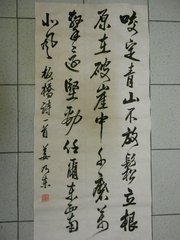 咬定青山不放鬆立根
原在破崖中千磨萬
擊還堅勁任爾東西南
北風 板橋詩一首 姜乃